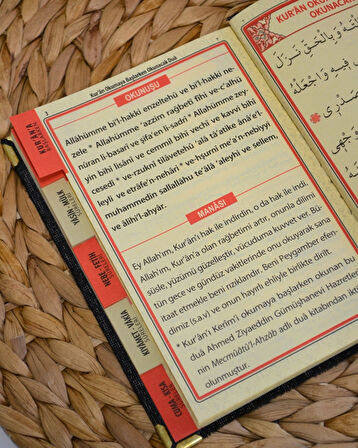 2
Kur'ân Okumaya Başlarken Okunacak Duâ
OKUNUŞU
Allâhümme bi'l-hakkı enzeltehû ve bi'l-hakkı ne-
zele * Allâhümme 'azzim rağbetî fîhi ve-c'alhü
nûran li-basarî ve şifâ'en li-sadrî * Allâhümme zey-
yin bihî lisânî ve cemmil bihî vechî ve kavvi bihî
cesedî * ve-rzuknî tilâvetehû 'alâ tâ'atike ânâ'e'l-
leyli ve etrâfe'n-nehâri * ve-hşurnî me'a'n-nebiyyi
muhammedin sallallahu te'âlâ 'aleyhi ve sellem,
ve âlihi'l-ahyâr.
MANÂSI
Ey Allah'ım, Kur'ân'ı hak ile indirdin, o da hak ile indi.
Allah'ım, Kur'ân'a olan rağbetimi artır, onunla dilimi
süsle, yüzümü güzelleştir, vücuduma kuvvet ver. Bü-
tün gece ve gündüz vakitlerinde onu okuyarak sana
itaat etmekle beni rızıklandır. Beni Peygamber efen-
dimiz (s.a.v) ve onun hayırlı ehliyle birlikte dirilt.
* Kur'ân'ı Kerîm'i okumaya başlarken okunan bu
duâ Ahmed Ziyaeddin Gümüşhanevi Hazretleri-
nin Mecmûatü'l-Ahzâb adlı duâ kitabından
olunmuştur.
KUR'ÂN'A
YASİN-MÜLK
SURELERİ
NEBE - FETİH
KIYÂMET-VÂKIA
SURELERİ
CUMA - KISA
KUR'ÂN OKU
OKUNACA